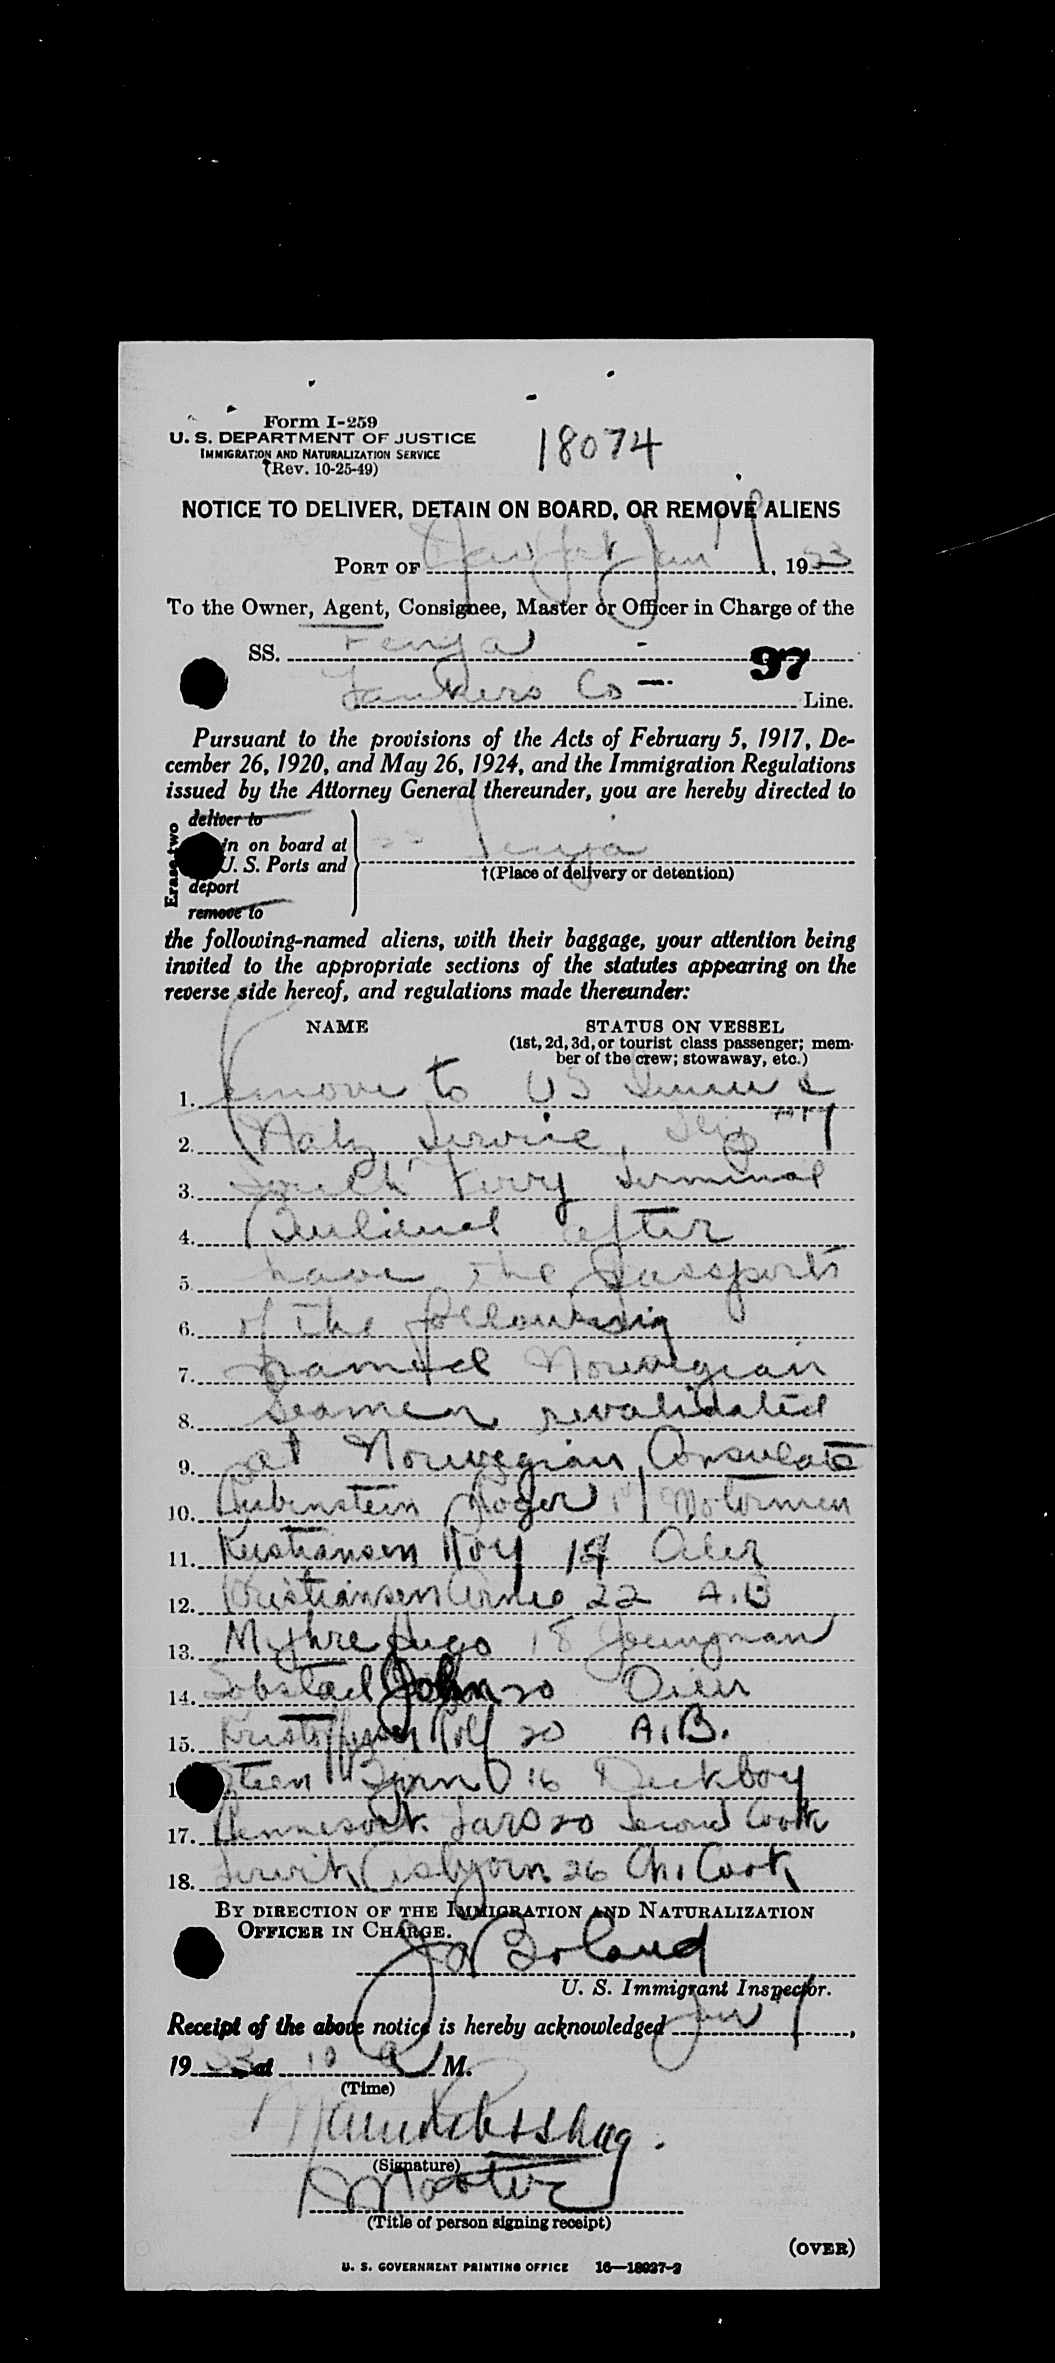 Form I-259
U. S. DEPARTMENT OF JUSTICE
IMMIGRATION AND NATURALIZATION SERVICE
(Rev. 10-25-49)
18074
NOTICE TO DELIVER, DETAIN ON BOARD, OR REMOVE ALIENS
PORT OF Jan 9, 1953
To the Owner, Agent, Consignee, Master or Officer in Charge of the
SS. Fenja
97
Tankers Co — Line.
Pursuant to the provisions of the Acts of February 5, 1917, De-
cember 26, 1920, and May 26, 1924, and the Immigration Regulations
issued by the Attorney General thereunder, you are hereby directed to
Erase two
deliver to
in on board at
U. S. Ports and
deport
remove to
SS Fenja
†(Place of delivery or detention)
the following-named aliens, with their baggage, your attention being
invited to the appropriate sections of the statutes appearing on the
reverse side hereof, and regulations made thereunder:
NAME
STATUS ON VESSEL
(1st, 2d, 3d, or tourist class passenger; mem-
ber of the crew; stowaway, etc.)
1. Remove to US
2. Service,
3. South Ferry Terminal
4. after
5. have the Passports
6. of the following
7. named Norwegian
8. Seamen revalidated
9. at Norwegian Consulate
10. Rubenstein Roger Motorman
11. Kristiansen Roy 19 Oiler
12. Kristiansen Arne 22 A.B
13. Mythre Hugo 18 Youngman
14. Sobstad John 20 Oiler
15. Kristoffersen Rolf 20 A.B.
Steen Finn 16 Deckboy
17. Lars 20 Second Cook
18. Asbjorn 26 Ch. Cook
BY DIRECTION OF THE IMMIGRATION AND NATURALIZATION
OFFICER IN CHARGE.
Boland
U. S. Immigrant Inspector.
Receipt of the above notice is hereby acknowledged Jan 9,
1953 at 10 a M.
(Time)
(Signature)
Master
(Title of person signing receipt)
(OVER)
U. S. GOVERNMENT PRINTING OFFICE 16—18027-2